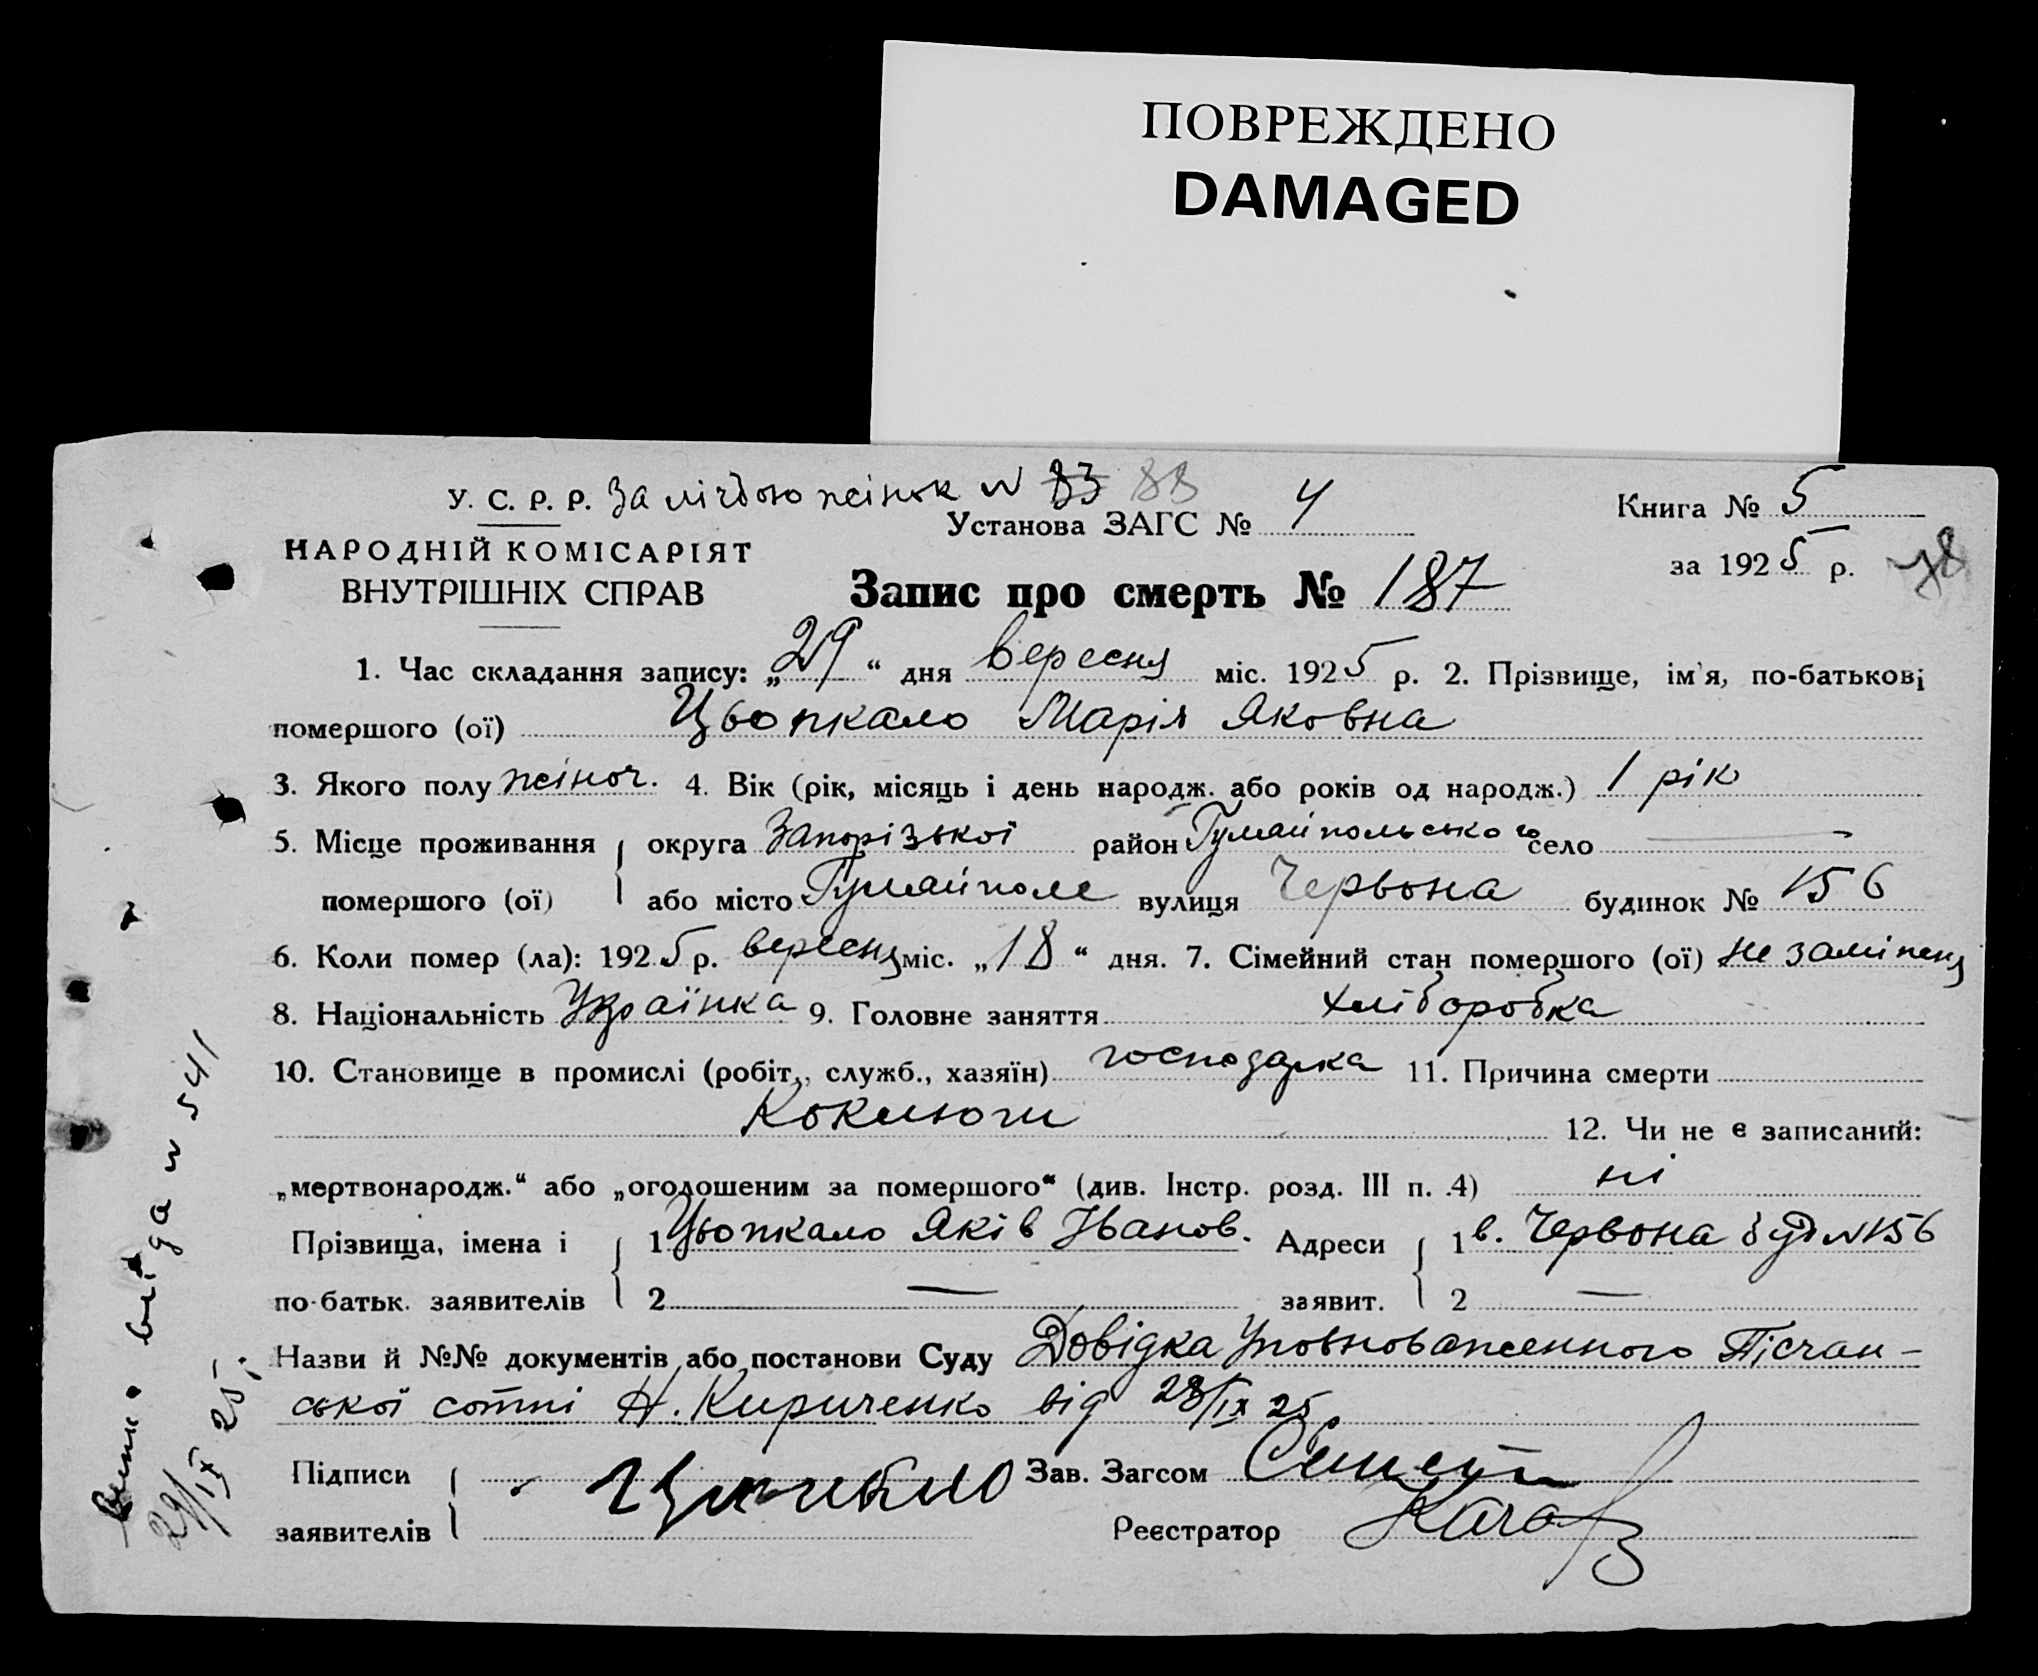 ПОВРЕЖДЕНО
DAMAGED
У. С. Р. Р. За лічбою жінок N 83 88
Установа ЗАГС № 4
Книга № 5
НАРОДНІЙ КОМІСАРІЯТ
ВНУТРІШНІХ СПРАВ
за 1925 р. 78
Запис про смерть № 187
1. Час складання запису: „29“ дня вересня міс. 1925 р. 2. Прізвище, ім'я, по-батькові
помершого (ої) Цьопкало Марія Яковна
3. Якого полу жіноч. 4. Вік (рік, місяць і день народж. або років од народж.) 1 рік
5. Місце проживання округа Запорізької район Гуляйпольського село —
помершого (ої) або місто Гуляйполе вулиця Червона будинок № 156
6. Коли помер (ла): 1925 р. вересня міс. „18“ дня. 7. Сімейний стан помершого (ої) не заміжня
8. Національність Українка 9. Головне заняття хліборобка
10. Становище в промислі (робіт., служб., хазяїн) господарка 11. Причина смерти
Коклюш
12. Чи не є записаний:
„мертвонародж.“ або „оголошеним за помершого“ (див. Інстр. розд. III п. 4) ні
Прізвища, імена і 1 Цьопкало Яків Іванов. Адреси 1 в. Червона буд N 156
по-батьк. заявителів 2 — заявит. 2 —
Назви й №№ документів або постанови Суду Довідка Уповноваженного Пісчан-
ської сотні Н. Кириченко від 28/IX 25
Підписи Зав. Загсом
заявителів Реєстратор
від N 541
29/IX 25